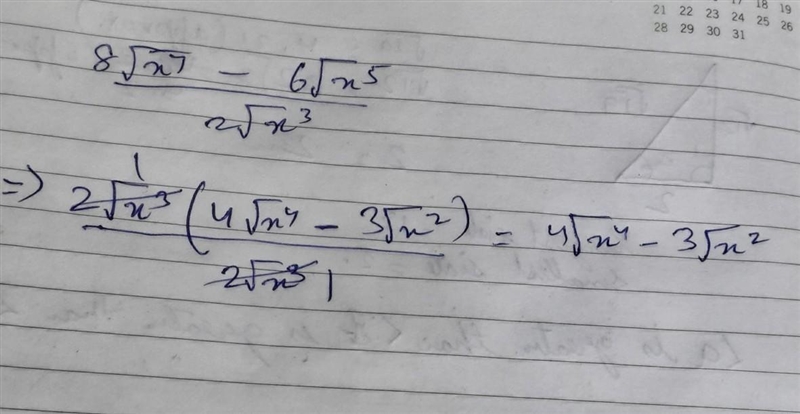 17 18 19
21 22 23 24 25 26
28 29 30 31
8√x⁷ - 6√x⁵
2√x³
1
=> 2√x³ (4√x⁴ - 3√x²) = 4√x⁴ - 3√x²
2√x³ 1